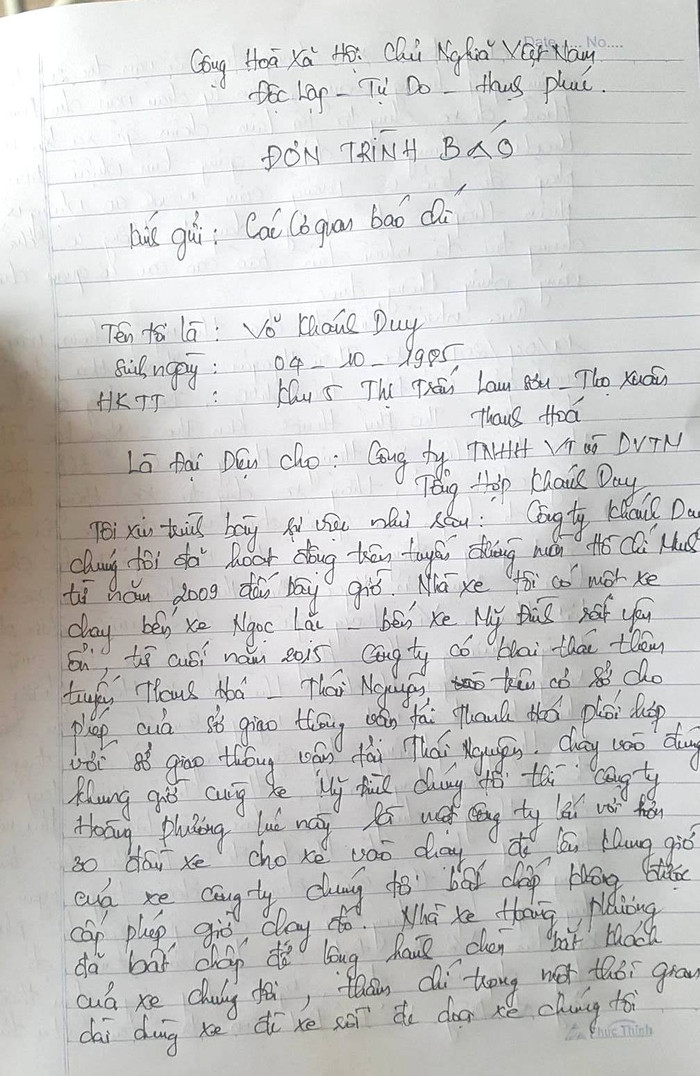 Date .... No....
Cộng Hoà Xã Hội Chủ Nghĩa Việt Nam
Độc Lập - Tự Do - Hạnh phúc.
ĐƠN TRÌNH BÁO
Kính gửi : Các Cơ quan báo chí
Tên tôi là : Võ Khánh Duy
Sinh ngày : 04 - 10 - 1985
HKTT : Khu 5 Thị Trấn Lam Sơn - Thọ Xuân
Thanh Hoá
Là Đại Diện cho : Công ty TNHH VT và DVTM
Tổng Hợp Khánh Duy
Tôi xin trình bày sự việc như sau : Công ty Khánh Duy
chúng tôi đã hoạt động trên tuyến đường mòn Hồ Chí Minh
từ năm 2009 đến bây giờ. Nhà xe tôi có một xe
chạy bến xe Ngọc Lặc - bến xe Mỹ Đình rất yên
ổn, từ cuối năm 2015 Công ty có khai thác thêm
tuyến Thanh Hoá - Thái Nguyên trên cơ sở cho
phép của sở giao thông vận tải Thanh Hoá phối hợp
với sở giao thông vận tải Thái Nguyên. chạy vào đúng
khung giờ cùng xe Mỹ Đình chúng tôi thì Công ty
Hoàng Phương lúc này là một Công ty lớn với hơn
30 đầu xe cho xe vào chạy đè lên khung giờ
của xe công ty chúng tôi bất chấp không được
cấp phép giờ chạy đó. Nhà xe Hoàng Phương
đã bất chấp để lộng hành chèn bắt khách
của xe chúng tôi, thậm chí trong một thời gian
dài dùng xe đi xe sốt để doạ xe chúng tôi
Phúc Thịnh